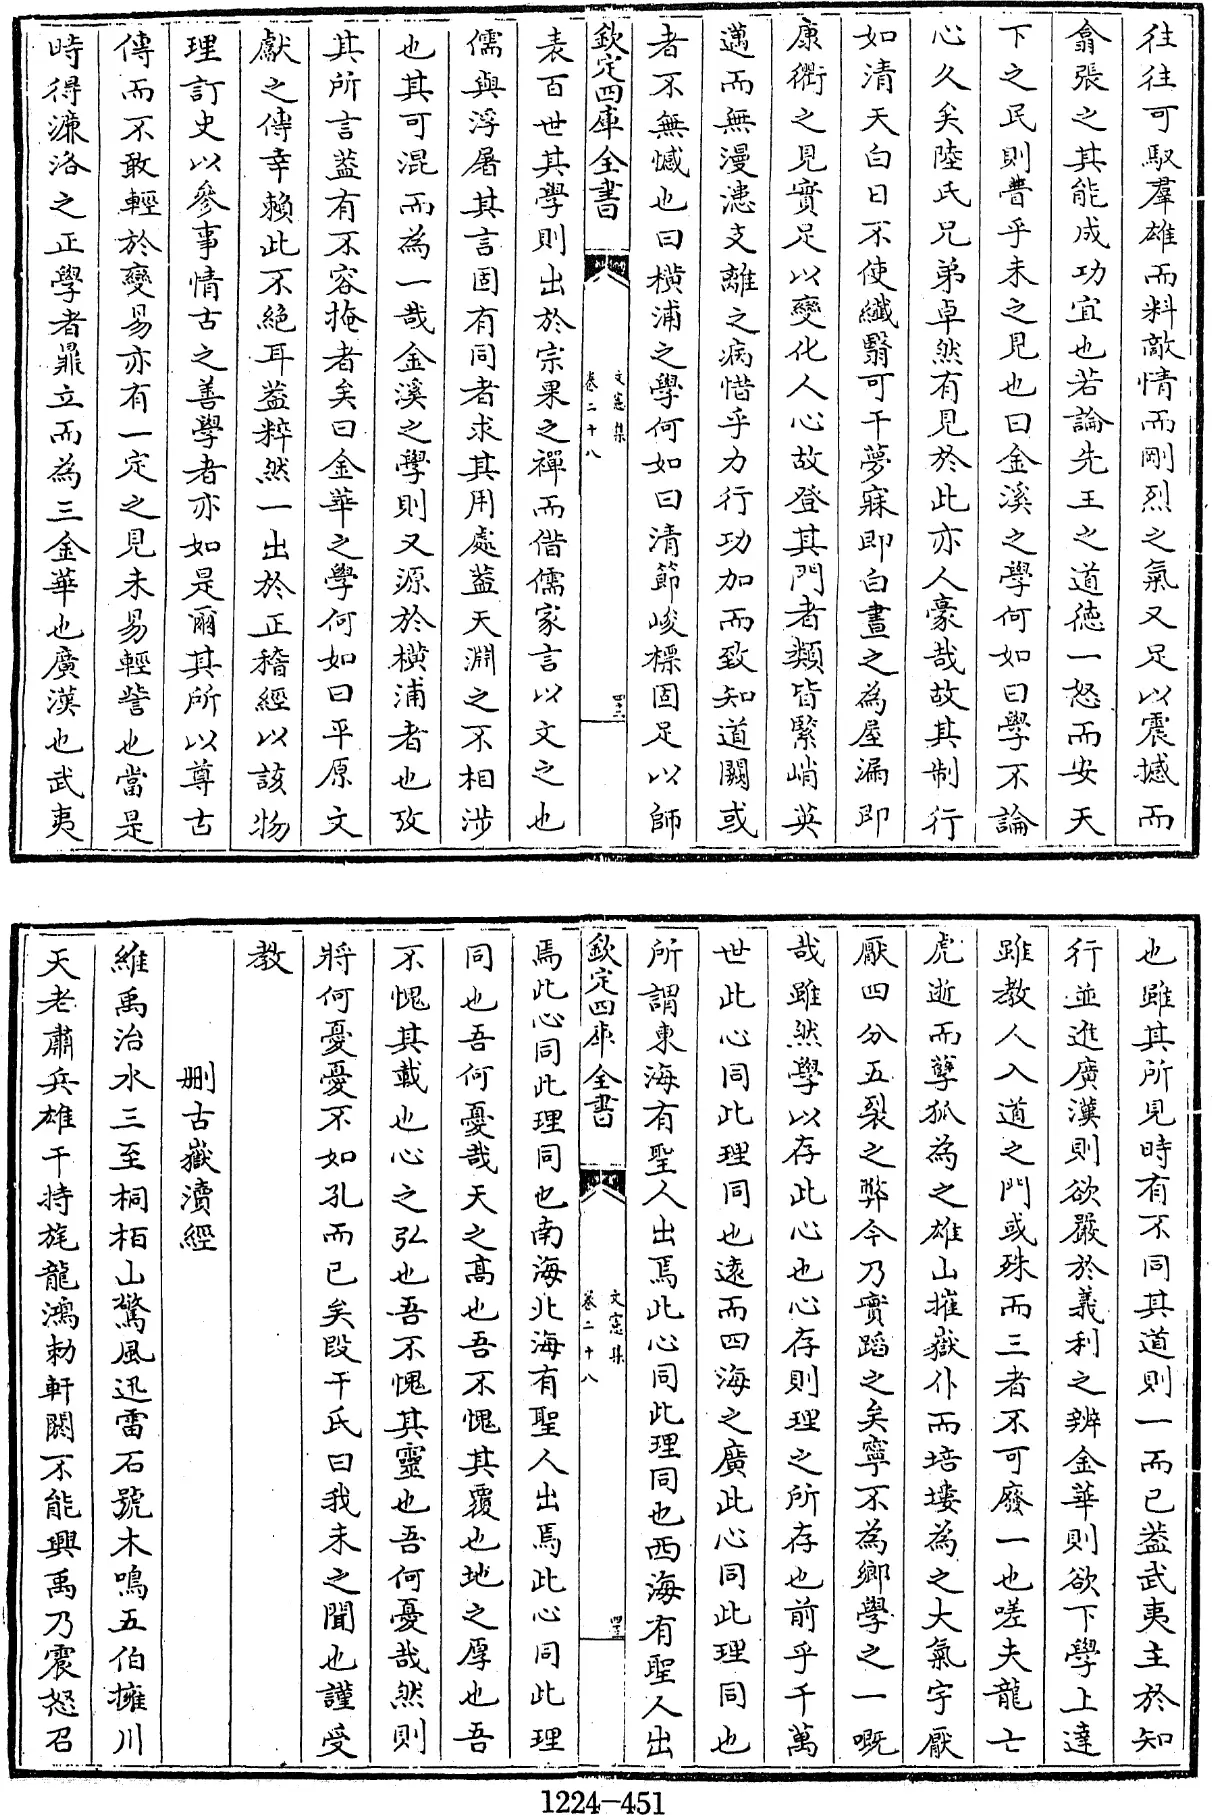 往往可馭羣雄而料敵情而剛烈之氣又足以震撼而
翕張之其能成功宜也若論先王之道德一怒而安天
下之民則瞢乎未之見也曰金溪之學何如曰學不論
心久矣陸氏兄弟卓然有見於此亦人豪哉故其制行
如清天白日不使纖翳可干夢寐即白晝之為屋漏即
康衢之見實足以變化人心故登其門者類皆緊峭英
邁而無漫漶支離之病惜乎力行功加而致知道闕或
者不無憾也曰橫浦之學何如曰清節峻標固足以師
欽定四庫全書
文憲集
卷二十八
四十二
表百世其學則出於宗杲之禪而借儒家言以文之也
儒與浮屠其言固有同者求其用處葢天淵之不相涉
也其可混而為一哉金溪之學則又源於橫浦者也攷
其所言葢有不容掩者矣曰金華之學何如曰平原文
獻之傳幸賴此不絕耳葢粹然一出於正稽經以該物
理訂史以參事情古之善學者亦如是爾其所以尊古
傳而不敢輕於變易亦有一定之見未易輕訾也當是
時得濂洛之正學者鼎立而為三金華也廣漢也武夷
也雖其所見時有不同其道則一而已葢武夷主於知
行並進廣漢則欲嚴於義利之辨金華則欲下學上達
雖教人入道之門或殊而三者不可廢一也嗟夫龍亡
虎逝而孽狐為之雄山摧嶽仆而培塿為之大氣宇厭
厭四分五裂之弊今乃實蹈之矣寧不為鄉學之一嘅
哉雖然學以存此心也心存則理之所存也前乎千萬
世此心同此理同也遠而四海之廣此心同此理同也
所謂東海有聖人出焉此心同此理同也西海有聖人出
欽定四庫全書
文憲集
卷二十八
四十三
焉此心同此理同也南海北海有聖人出焉此心同此理
同也吾何憂哉天之高也吾不愧其覆也地之厚也吾
不愧其載也心之弘也吾不愧其靈也吾何憂哉然則
將何憂憂不如孔而已矣段干氏曰我未之聞也謹受
教
刪古嶽瀆經
維禹治水三至桐栢山驚風迅雷石號木鳴五伯擁川
天老肅兵雄干持旄龍鴻勅軒閼不能興禹乃震怒召
1224-451